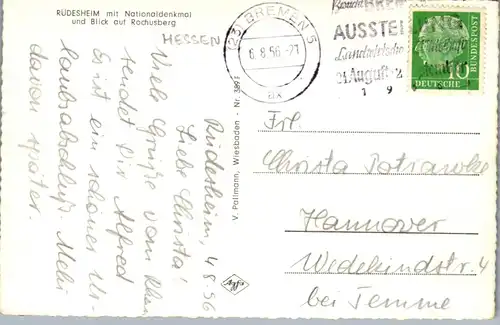 RÜDESHEIM mit Nationaldenkmal
und Blick auf Rochusberg
HESSEN
(23) BREMEN 5
6.8.56.-21
ax
Besucht
AUSSTELLUNG
Landwirtschaft
24. August
1 9
10
DEUTSCHE
BUNDESPOST
V. Pallmann, Wiesbaden - Nr.
Agfa
Rüdesheim, 4.8.56
Liebe Christa!
Viele Grüße vom Rhein
sendet Dir Alfred
Es ist ein schöner Ur-
laubsabschluß. Mehr
davon später.
Frl.
Christa Patrawke
Hannover
Wedekindstr. 4
bei Temme